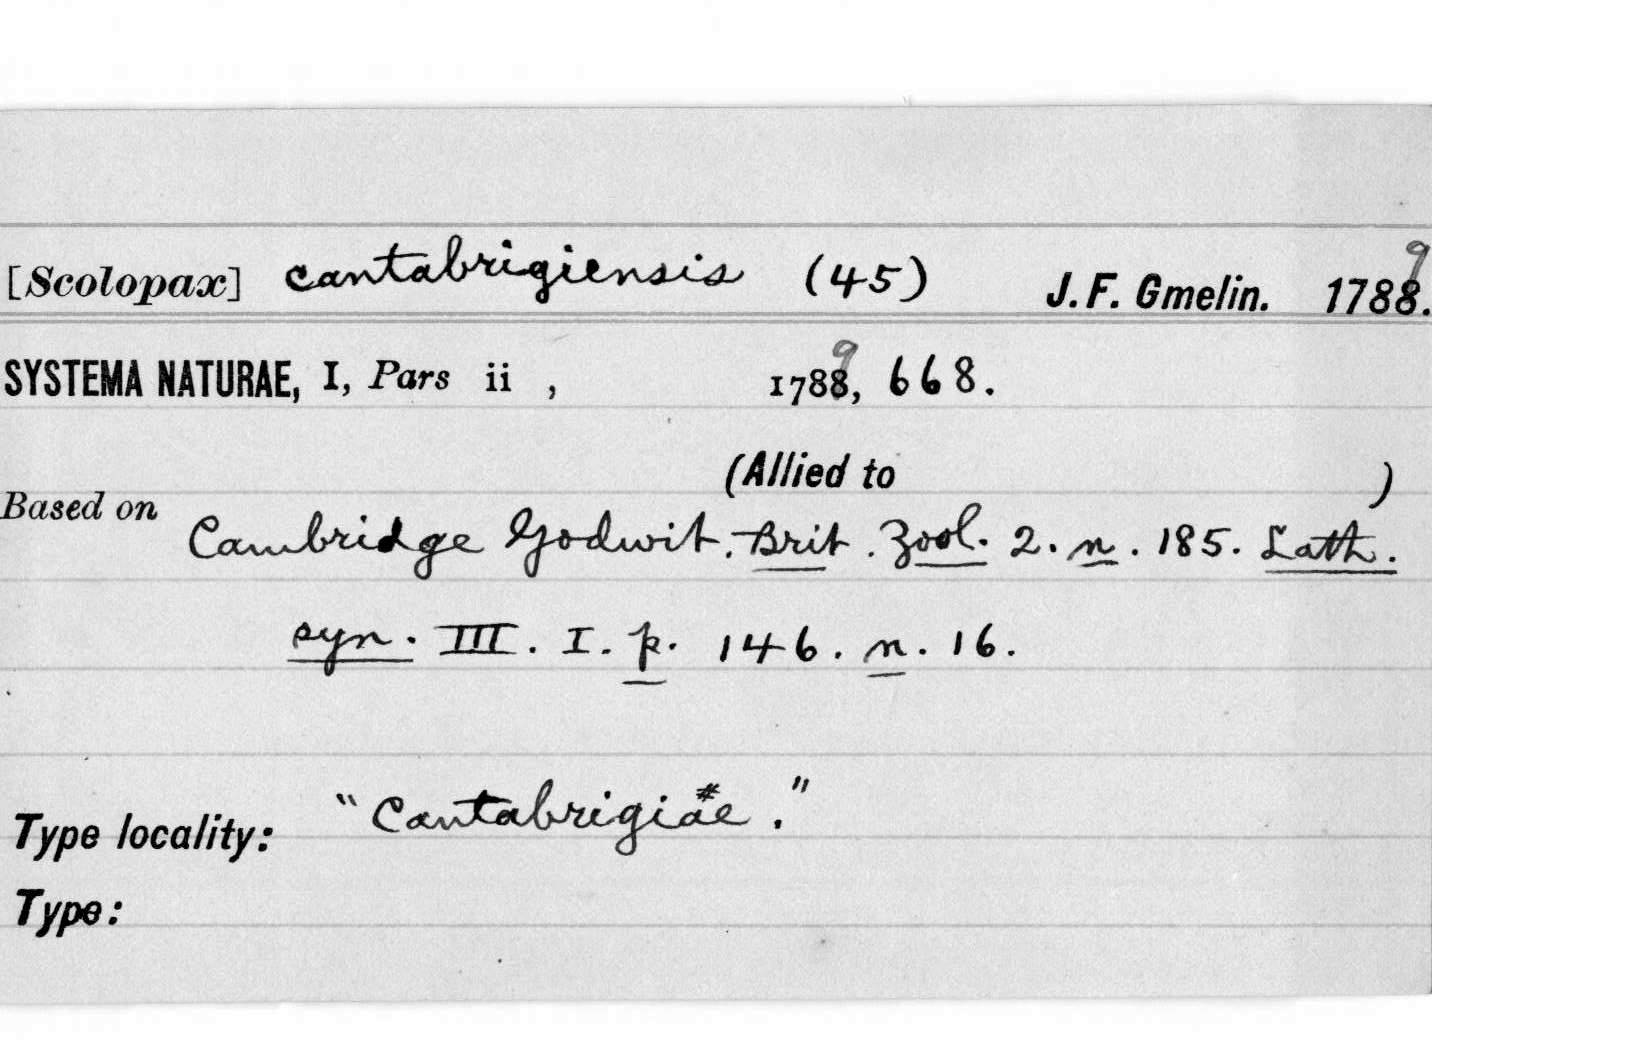 [Scolopax] cantabrigiensis (45) J. F. Gmelin. 1788. 9
SYSTEMA NATURAE, I, Pars ii , 1788, 9 668.
(Allied to )
Based on Cambridge Godwit. Brit. Zool. 2. n. 185. Lath.
syn. III. I. p. 146. n. 16.
Type locality: "Cantabrigiae."
Type: